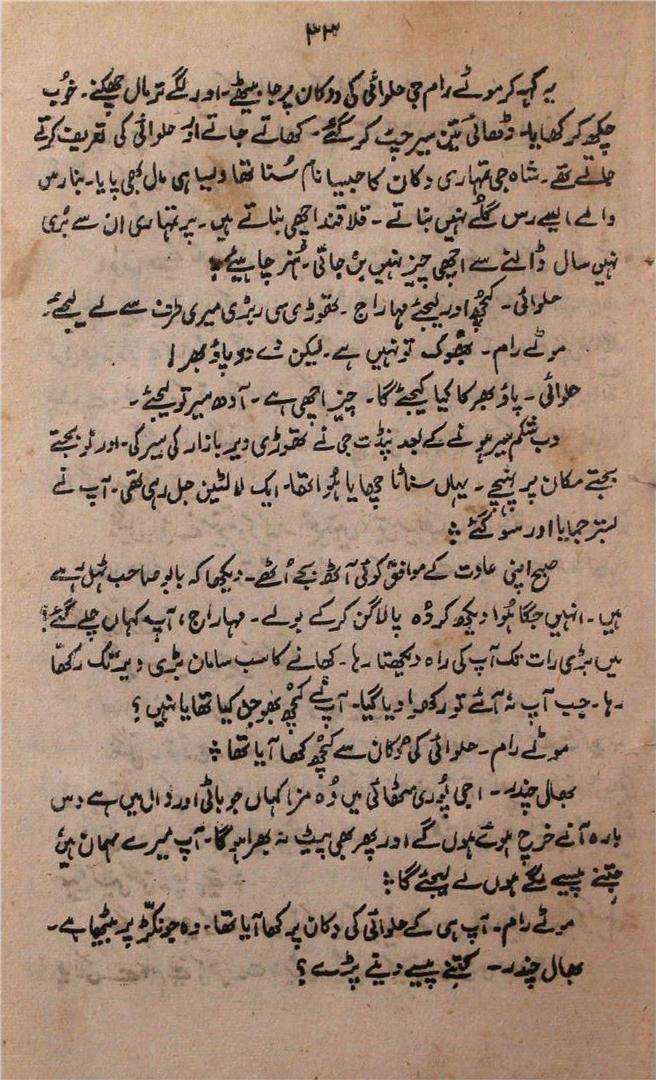 ۳۳
یہ کہہ کر موٹے رام جی حلوائی کی دوکان پر جا بیٹھے۔ اور لگے تر مال چکھنے۔ خوُب
چکھ کر کھایا۔ ڈھائی تین سیر چٹ کر گئے۔ کھاتے جاتے اور حلوائی کی تعریف کرتے
جاتے تھے۔ شاہ جی تمہاری دکان کا جیسا نام سُنا تھا ویسا ہی مال بھی پایا۔ بنارس
والے ایسے رس گُلے نہیں بناتے۔ قلاقند اچھی بناتے ہیں۔ پر تمہاری ان سے بُری
نہیں مال ڈالنے سے اچھی چیز نہیں بن جاتی۔ ہُنر چاہیئے
حلوائی۔ کچُھ اور لیجئے مہاراج۔ تھوڑی سی ربڑی میری طرف سے لے لیجئے۔
موٹے رام۔ بھُوک تو نہیں ہے۔ لیکن دے دو پاؤ بھر!
حلوائی۔ پاؤ بھر کا کیا کیجئے گا۔ چیز اچھی ہے۔ آدھ سیر تو لیجئے۔
خوب شکم سیر ہونے کے بعد پنڈت جی نے تھوڑی دیر بازار کی سیر کی۔ اور نو بجتے
بجتے مکان پر پہنچے۔ یہاں سناٹا چھایا ہُوا تھا۔ ایک لالٹین جل رہی تھی۔ آپ نے
بستر جمایا اور سو گئے
صبح اپنی عادت کے موافق کوئی آٹھ بجے اُٹھے۔ دیکھا کہ بابو صاحب ٹہل رہے
ہیں۔ انہیں جگا ہُوا دیکھ کر وُہ پالاگن کرکے بولے۔ مہاراج، آپ کہاں چلے گئے؟
میں بڑی رات تک آپ کی راہ دیکھتا رہا۔ کھانے کا سب سامان بڑی دیر تک رکھا
رہا۔ جب آپ نہ آئے تو رکھوا دیا گیا۔ آپ نے کچُھ بھوجن کیا تھا یا نہیں؟
موٹے رام۔ حلوائی کی دوکان سے کچُھ کھا آیا تھا
بھال چندر۔ اجی پُوری مٹھائی میں وُہ مزا کہاں جو باٹی اور دال میں ہے دس
بارہ آنے خرچ ہوئے ہوں گے اور پھر بھی پیٹ نہ بھرا ہوگا۔ آپ میرے مہمان ہیں
جتنے پیسے لگے ہوں لے لیجئے گا
موٹے رام۔ آپ ہی کے حلوائی کی دکان پر کھا آیا تھا۔ وہ جو نکڑ پر بیٹھا ہے۔
بھال چندر۔ کتنے پیسے دینے پڑے؟